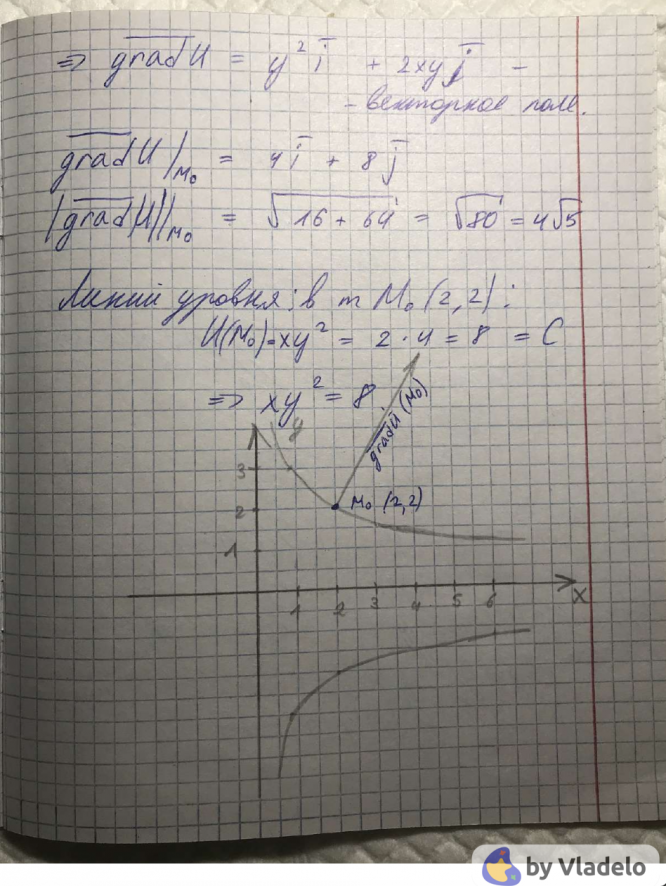 ⇒ grad U = y² i + 2xy j –
– векторное поле.
grad U |M₀ = 4 i + 8 j
|grad U||M₀ = √16 + 64 = √80 = 4√5
Линий уровня: в т M₀ (2,2):
U(M₀) = xy² = 2 · 4 = 8 = C
⇒ xy² = 8
y
grad U (M₀)
3
2
M₀ (2,2)
1
1 2 3 4 5 6 x
by Vladelo